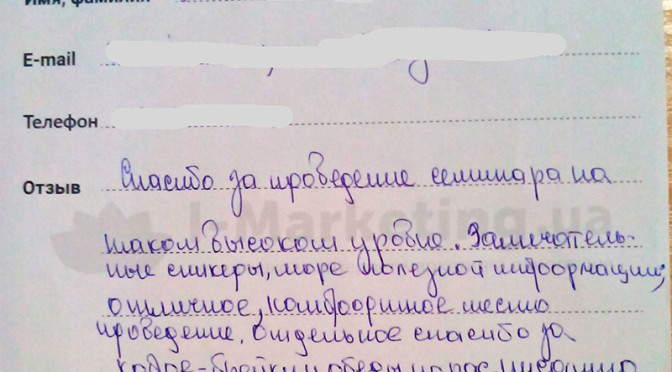 Имя, фамилия
E-mail
Телефон
Отзыв Спасибо за проведение семинара на
I-Marketing.ua
таком высоком уровне. Замечатель-
ные спикеры, море полезной информации,
отличное, комфортное место
проведение. Отдельное спасибо за
кофе-брейки и обеды